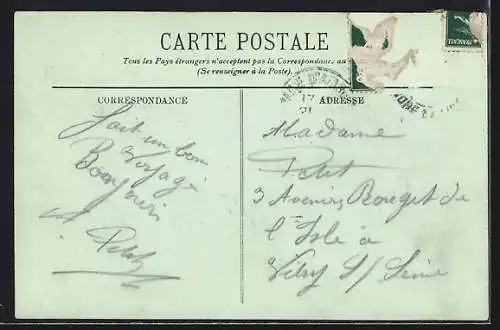 CARTE POSTALE
Tous les Pays étrangers n'acceptent pas la Correspondance au
(Se renseigner à la Poste).
CORRESPONDANCE
ADRESSE
Fait un bon
Voyage
Bonjour
Petit
Madame
Petit
3 Avenue Rouget de
l'Isle à
Vitry S/ Seine